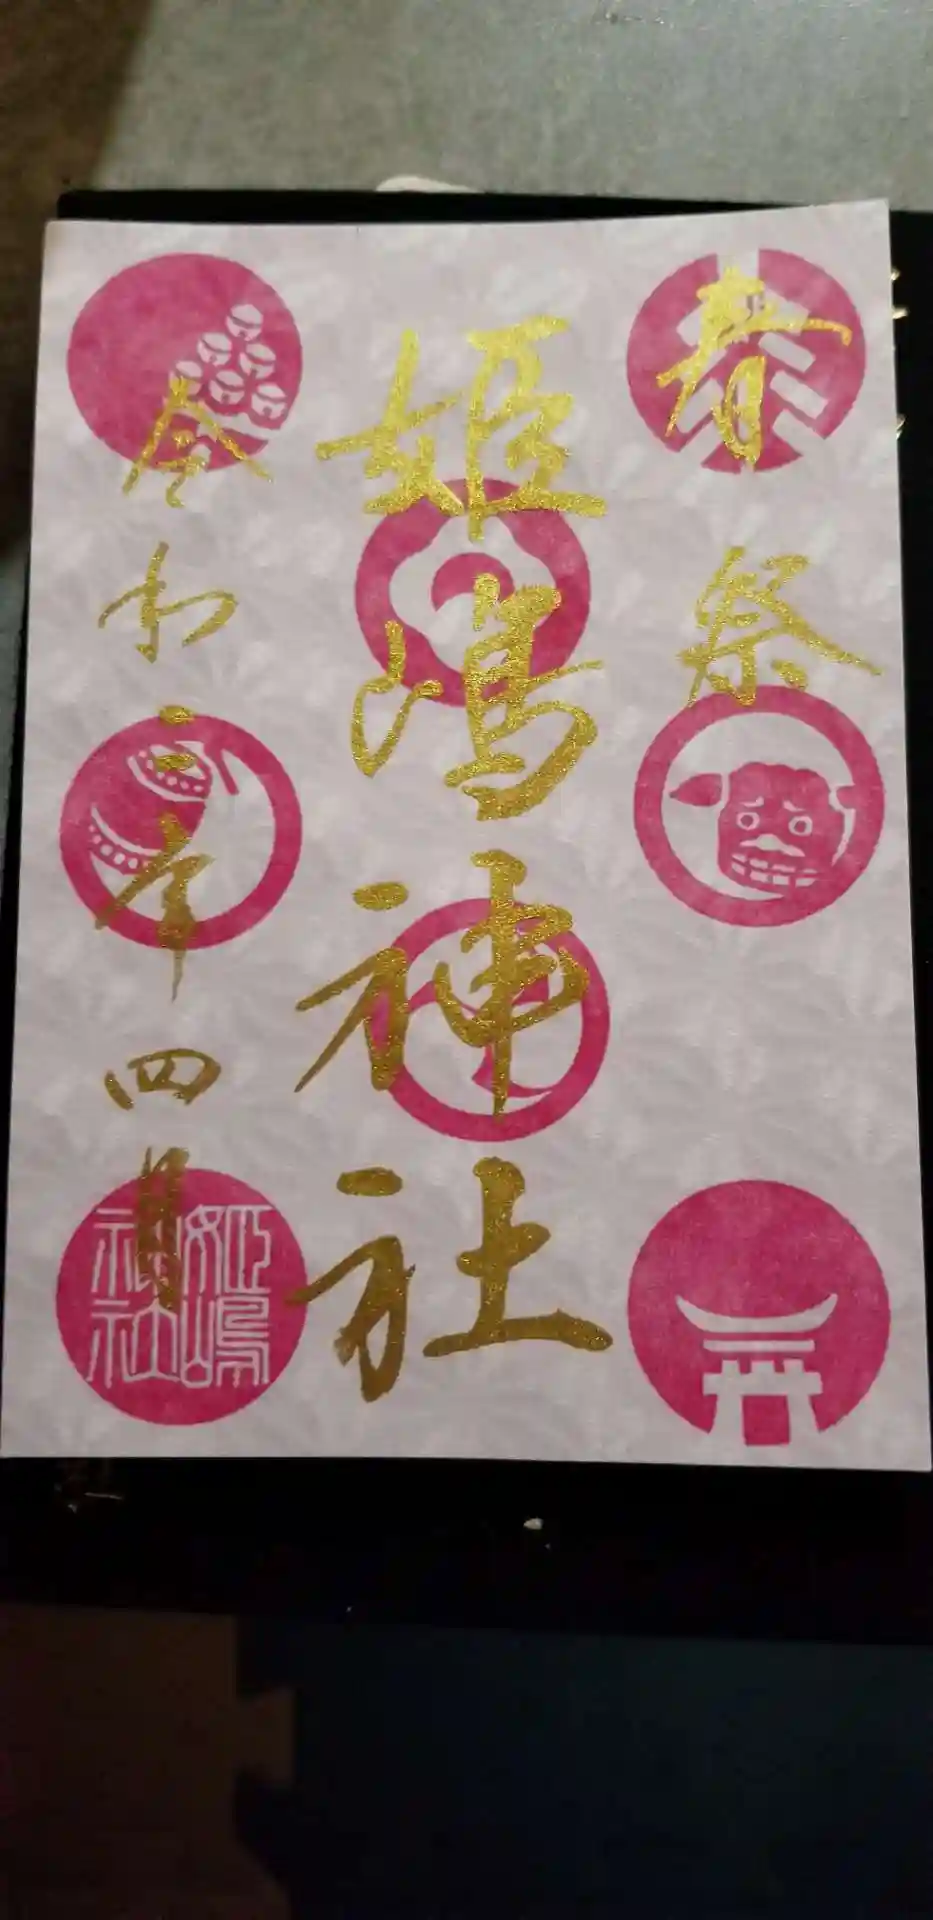 春祭
姫嶋神社
令和二年四月
姫嶋
神社